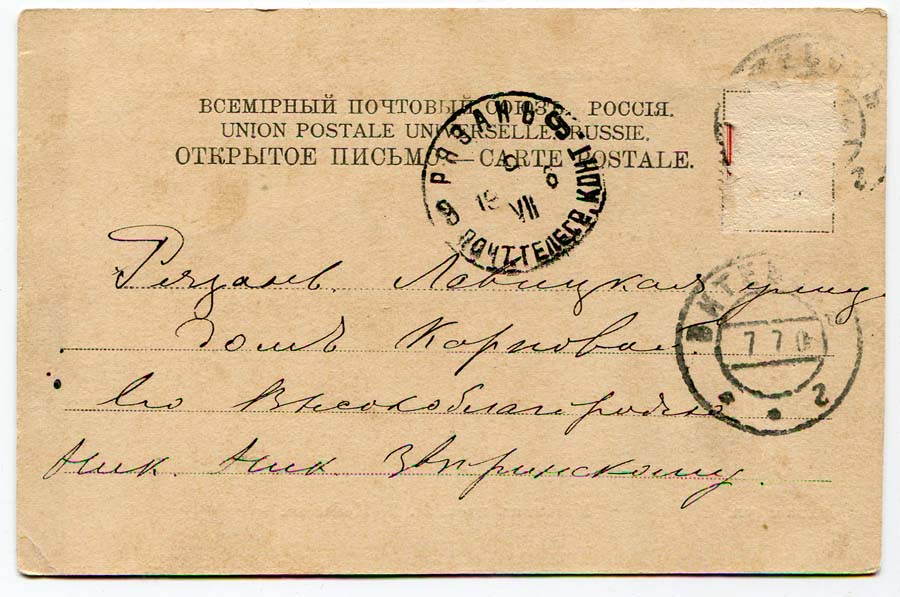 ВСЕМІРНЫЙ ПОЧТОВЫЙ СОЮЗЪ. РОССІЯ.
UNION POSTALE UNIVERSELLE. RUSSIE.
ОТКРЫТОЕ ПИСЬМО.—CARTE POSTALE.
РЯЗАНЬ
ПОЧТ.ТЕЛЕГР. КОНТ.
VII
Рязань.
ВИТЕ
7 7 0
2
домъ
Его Высокоблагородію
Ник. Ник. Зверинскому.